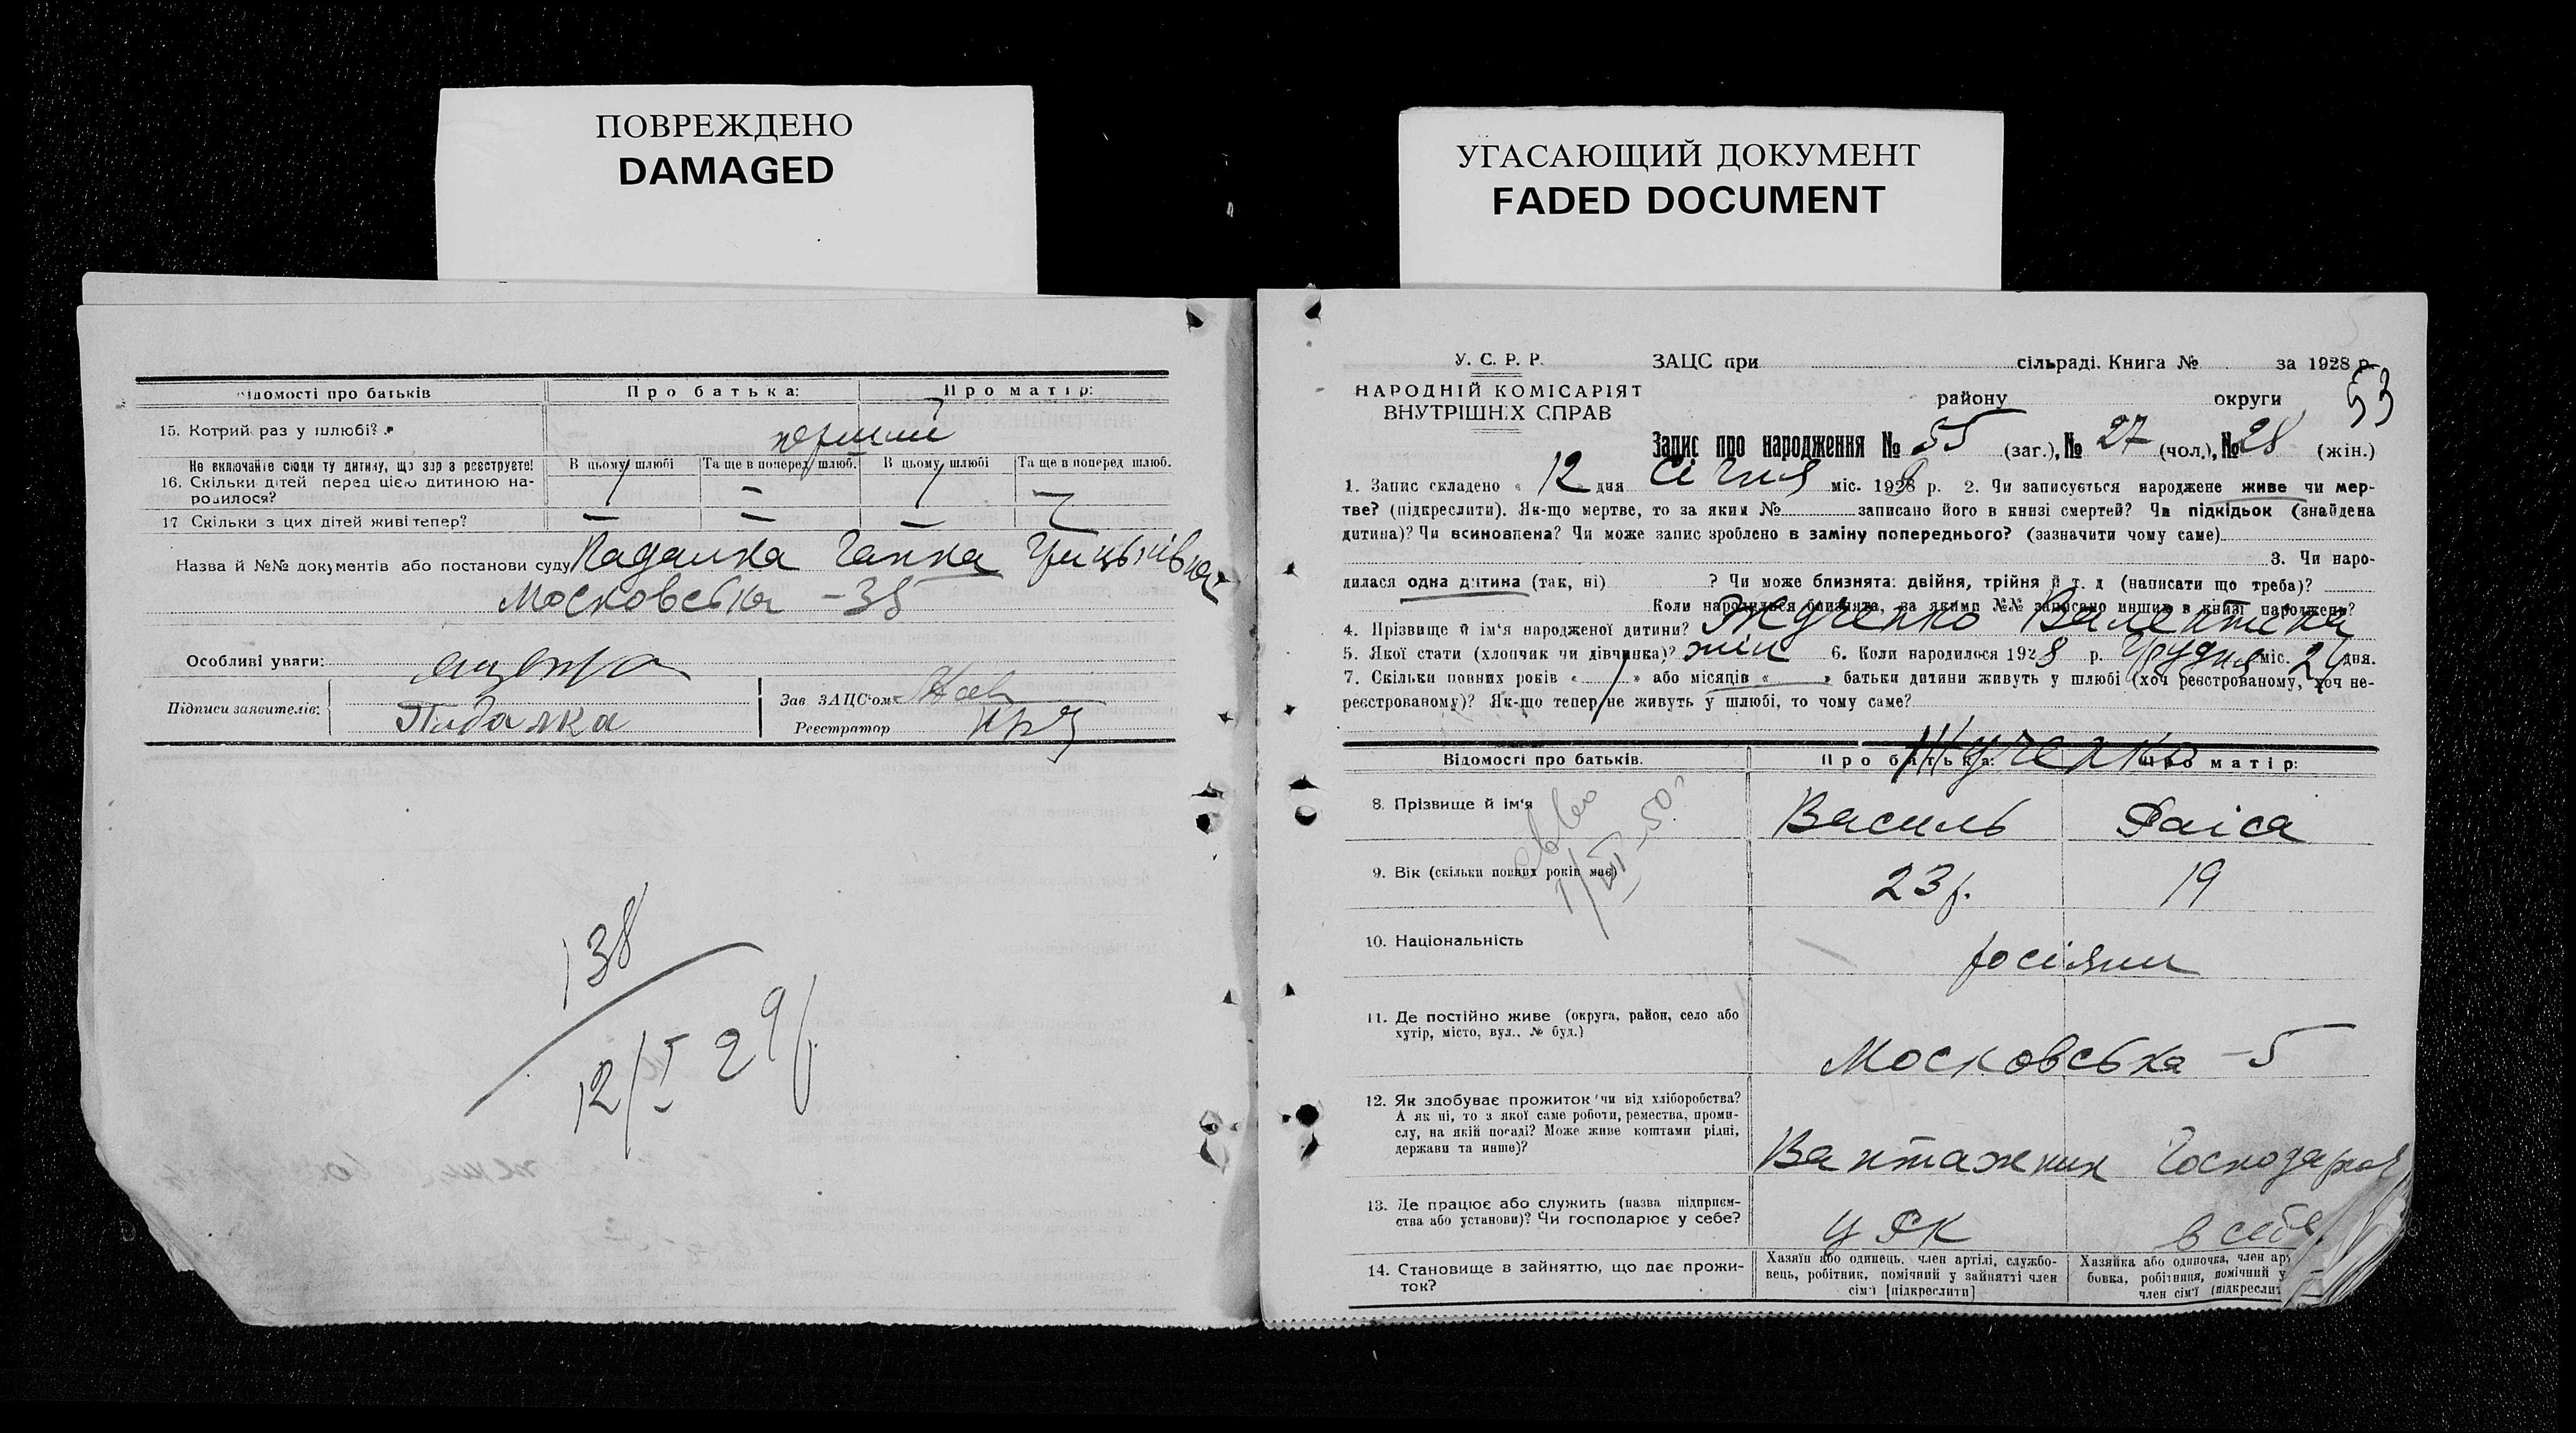 ПОВРЕЖДЕНО
DAMAGED
УГАСАЮЩИЙ ДОКУМЕНТ
FADED DOCUMENT
відомості про батьків
Про батька:
Про матір:
15. Котрий раз у шлюбі?
перший
Не включайте сюди ту дитину, що зар з реєструєте!
16. Скільки дітей перед цією дитиною народилося?
В цьому шлюбі
Та ще в поперед шлюб.
В цьому шлюбі
Та ще в поперед шлюб.
1 — 1 —
17 Скільки з цих дітей живі тепер?
— — — —
Назва й №№ документів або постанови суду Падалка Ганна Грицьківна
Московська - 38
Особливі уваги:
Підписи заявителів:
Падалка
Зав ЗАЦС'ом
Реєстратор
138
12/I 29
У. С. Р. Р.
НАРОДНІЙ КОМІСАРІЯТ
ВНУТРІШНІХ СПРАВ
ЗАЦС при сільраді. Книга № за 1928 р.
району округи
53
Запис про народження № 55 (заг.), № 27 (чол.), № 28 (жін.)
1. Запис складено « 12 » дня Січня міс. 1929 р. 2. Чи записується народжене живе чи мер-
тве? (підкреслити). Як-що мертве, то за яким № записано його в книзі смертей? Чи підкідьок (знайдена
дитина)? Чи всиновлена? Чи може запис зроблено в заміну попереднього? (зазначити чому саме)
3. Чи наро-
дилася одна дитина (так, ні) ? Чи може близнята: двійня, трійня й т. д (написати що треба)?
Коли народилися близнята, за якими №№ записано инших в книзі народжень?
4. Прізвище й ім'я народженої дитини? Жученко Валентина
5. Якої стати (хлопчик чи дівчинка)? жін 6. Коли народилося 1928 р. Грудня міс. 24 дня.
7. Скільки повних років « 1 » або місяців « » батьки дитини живуть у шлюбі (хоч реєстрованому, хоч не-
реєстрованому)? Як-що тепер не живуть у шлюбі, то чому саме?
Жученко
Відомості про батьків.
Про батька:
Про матір:
8. Прізвище й ім'я
Василь
Раіса
9. Вік (скільки повних років має)
23 р.
19
10. Національність
росіяни
11. Де постійно живе (округа, район, село або
хутір, місто, вул., № буд.)
Московська - 5
12. Як здобуває прожиток чи від хліборобства?
А як ні, то з якої саме роботи, ремества, проми-
слу, на якій посаді? Може живе коштами рідні,
держави та инше)?
Вантажник
13. Де працює або служить (назва підприєм-
ства або установи)? Чи господарює у себе?
14. Становище в зайняттю, що дає прожи-
ток?
Хазяїн або одинець, член артілі, службо-
вець, робітник, помічний у зайнятті член
сім'ї [підкреслити]
Хазяйка або одиночка, член ар
бовка, робітниця, помічний у
член сім'ї (підкресли